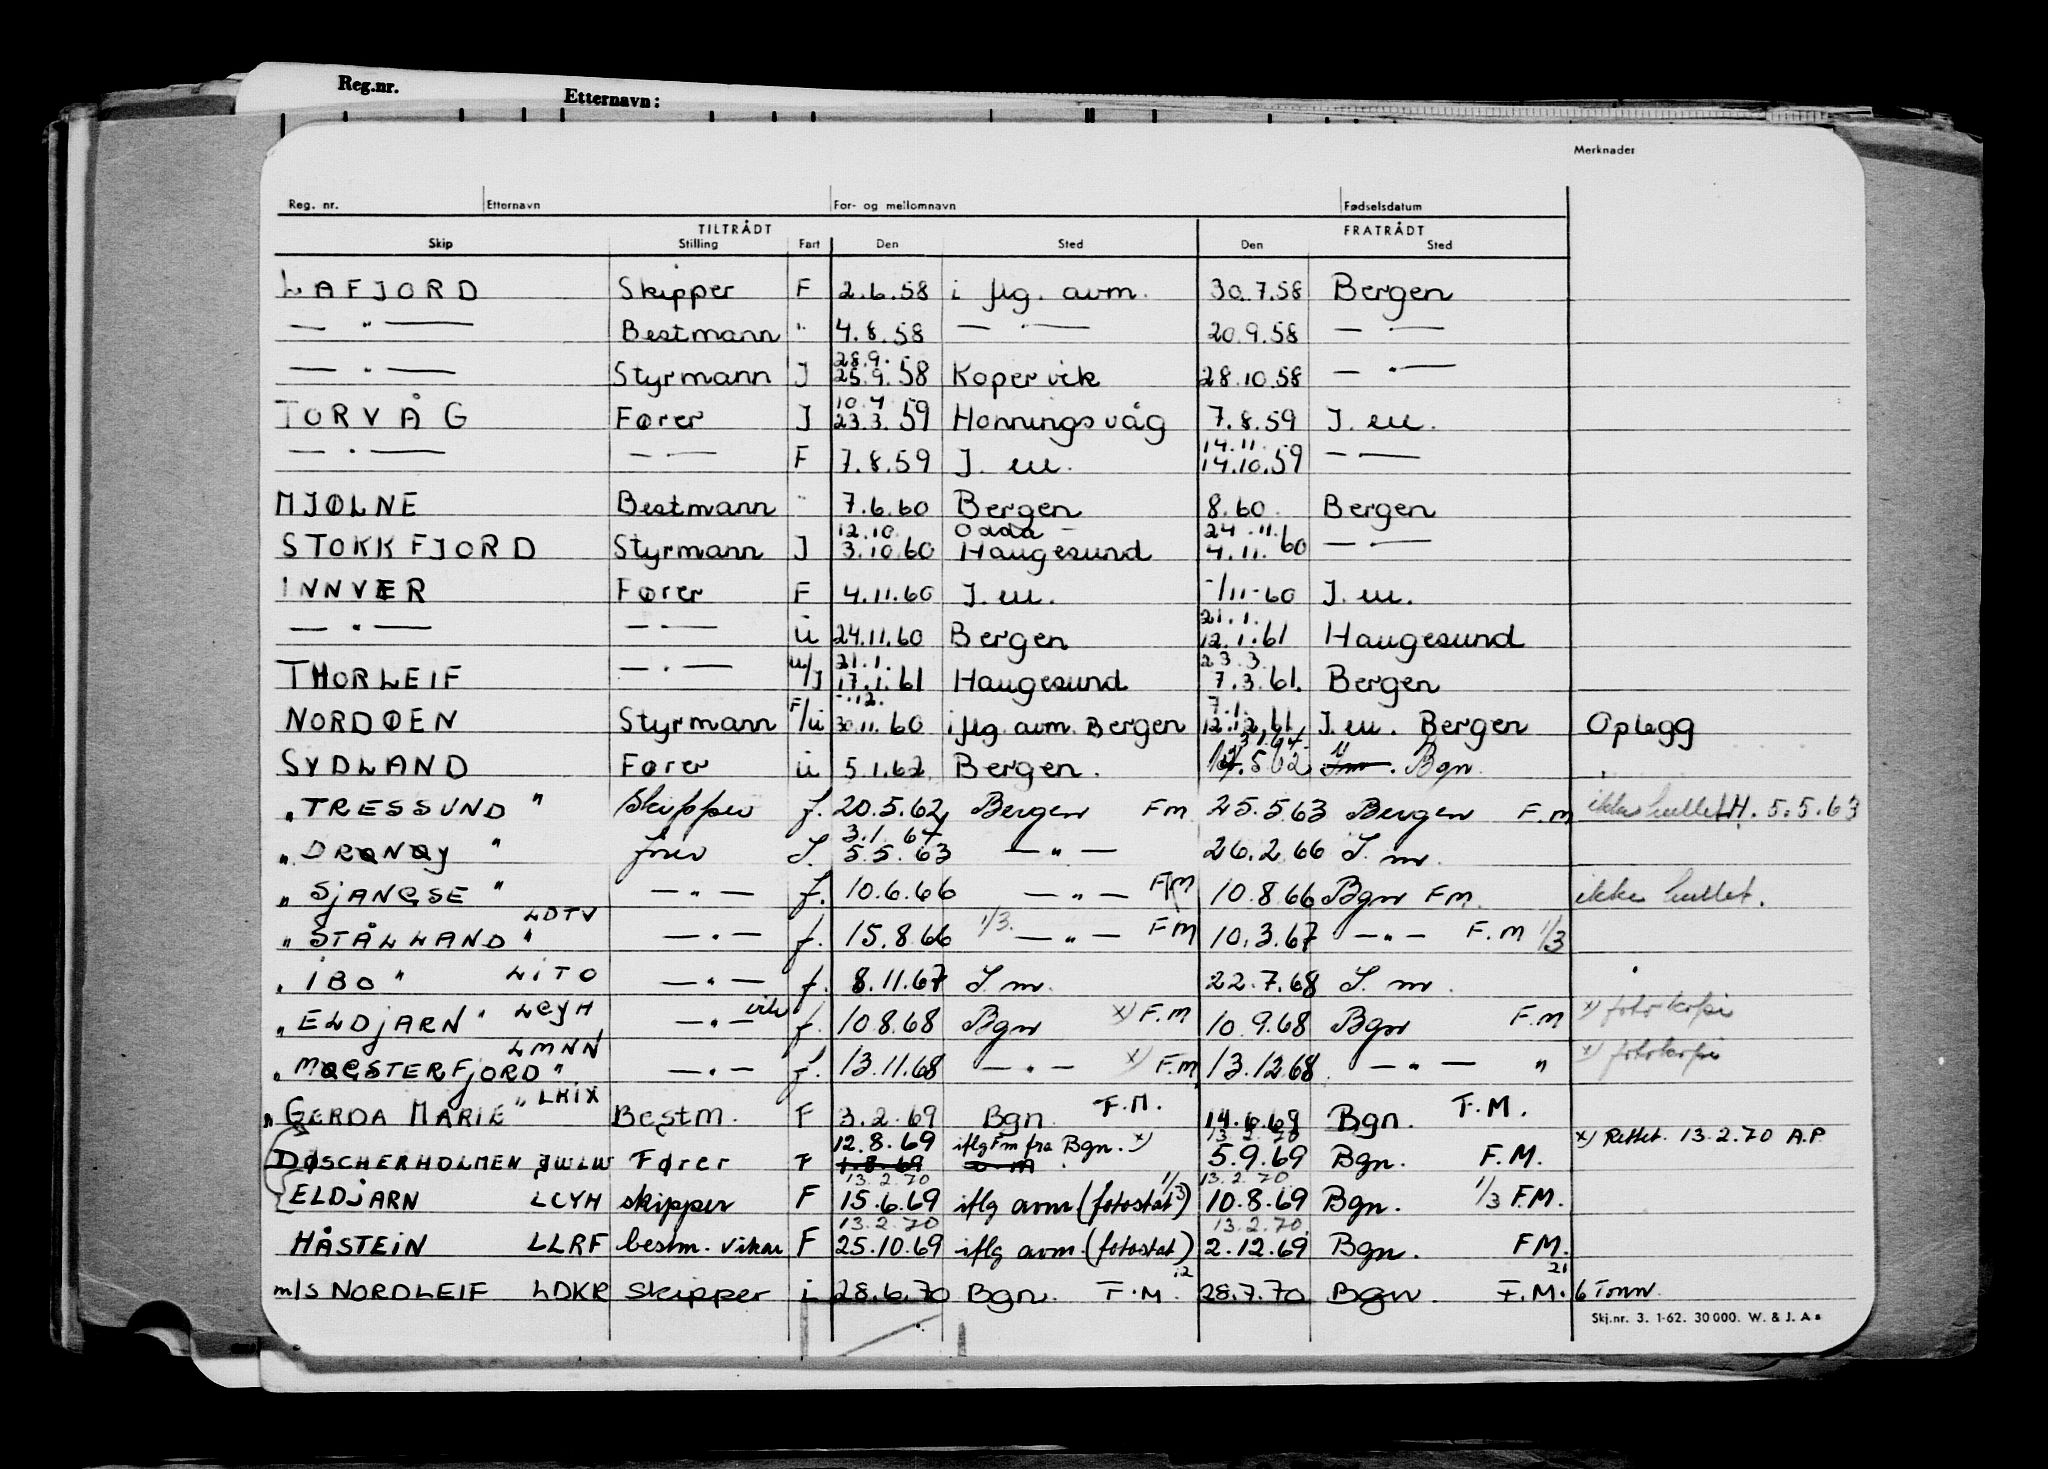 Reg.nr. Etternavn:
Merknader
Reg. nr. Etternavn For- og mellomnavn Fødselsdatum
TILTRÅDT FRATRÅDT
Skip Stilling Fart Den Sted Den Sted
LAFJORD Skipper F 2.6.58 i flg. avm. 30.7.58 Bergen
— " — Bestmann " 4.8.58 — " — 20.9.58 — " —
28.9.
— " — Styrmann J 25.9.58 Kopervik 28.10.58 — " —
10.4
TORVÅG Fører J 23.3.59 Honningsvåg 7.8.59 J. m.
14.11.
— " — — " — F 7.8.59 J. m. 14.10.59 — " —
MJØLNE Bestmann " 7.6.60 Bergen 8.60 Bergen
12.10. Odda — 24.11.
STOKKFJORD Styrmann J 3.10.60 Haugesund 4.11.60 — " —
INNVÆR Fører F 4.11.60 J. m. -/11-60 J. m.
21.1.
— " — — " — u 24.11.60 Bergen 12.1.61 Haugesund
21.1. 23.3.
THORLEIF — " — u/J 17.1.61 Haugesund 7.3.61. Bergen
-.12. 7.1.
NORDØEN Styrmann F/u 30.11.60 i flg. avm. Bergen 12.12.61 J. m. Bergen Oplegg
SYDLAND Fører u 5.1.62 Bergen. Bgn.
"TRESSUND" Skipper f. 20.5.62 Bergen FM 25.5.63 Bergen F.M ikke hullet H. 5.5.63
3.1.64
"DRØNØY" fører J. 5.5.63 — " — 26.2.66 J. m.
"SJANGSE" — " — f. 10.6.66 — " — FM 10.8.66 Bgn FM. ikke hullet.
LDTV
"STÅLLAND" — " — f. 15.8.66 1/3. — " — FM 10.3.67 — " — F.M 1/3
"IBO" LITO — " — f. 8.11.67 J. m. 22.7.68 J. m.
"ELDJARN" LCYH — " — vik f. 10.8.68 Bgn x) F.M 10.9.68 Bgn F.M x) fotokopi
LMNN
"MØGSTERFJORD" — " — f. 13.11.68 — " — x) F.M 13.12.68. — " — " x) fotokopi
"GERDA MARIE" LHIX Bestm. F 3.2.69 Bgn. F.M. 14.6.69 Bgn. F.M.
12.8.69 iflg Fm fra Bgn. x) 13.2.70 x) Rettet. 13.2.70 A.P.
DØSCHERHOLMEN JWLW Fører F 1.8.69 5.9.69 Bgn. F.M.
13.2.70 13.2.70
ELDJARN LCYH skipper F 15.6.69 iflg avm (fotostat) 1/3 10.8.69 Bgn. 1/3 F.M.
13.2.70 13.2.70.
HÅSTEIN LLRF bestm. vikar F 25.10.69 iflg avm. (fotostat) 2.12.69 Bgn. FM.
12 21
m/s NORDLEIF LDKR Skipper i 28.6.70 Bgn. F.M. 28.7.70 Bgn. F.M. 6 Tonn.
Skj.nr. 3. 1-62. 30 000. W. & J. As